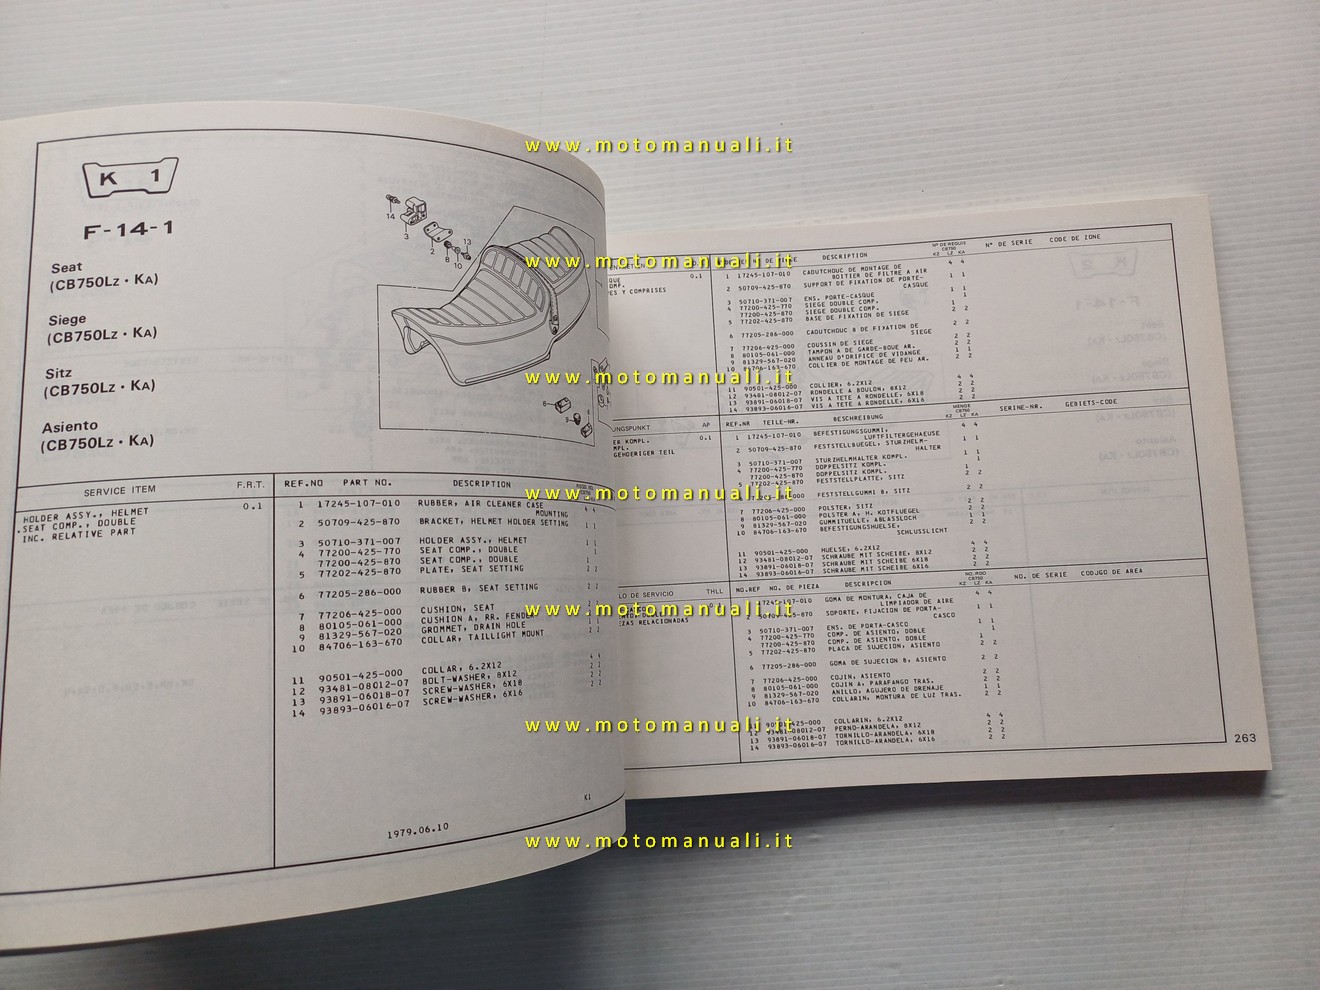 K 1
F-14-1
Seat
(CB750Lz · KA)
Siege
(CB750Lz · KA)
Sitz
(CB750Lz · KA)
Asiento
(CB750Lz · KA)
14
3
2
8
10
13
6
9
SERVICE ITEM F.R.T.
HOLDER ASSY., HELMET 0.1
.SEAT COMP., DOUBLE
INC. RELATIVE PART
REF.NO PART NO. DESCRIPTION
1 17245-107-010 RUBBER, AIR CLEANER CASE
MOUNTING 4 4
2 50709-425-870 BRACKET, HELMET HOLDER SETTING 1 1
3 50710-371-007 HOLDER ASSY., HELMET 1 1
4 77200-425-770 SEAT COMP., DOUBLE 1
77200-425-870 SEAT COMP., DOUBLE 1
5 77202-425-870 PLATE, SEAT SETTING 2 2
6 77205-286-000 RUBBER B, SEAT SETTING 2 2
7 77206-425-000 CUSHION, SEAT
8 80105-061-000 CUSHION A, RR. FENDER
9 81329-567-020 GROMMET, DRAIN HOLE
10 84706-163-670 COLLAR, TAILLIGHT MOUNT
11 90501-425-000 COLLAR, 6.2X12 4 4
12 93481-08012-07 BOLT-WASHER, 8X12 2 2
13 93891-06018-07 SCREW-WASHER, 6X18 2 2
14 93893-06016-07 SCREW-WASHER, 6X16 2 2
K1
1979.06.10
0.1
ES Y COMPRISES
DESCRIPTION
Nº DE REQUIS
CB750
KZ LZ KA
Nº DE SERIE CODE DE IONE
1 17245-107-010 CAOUTCHOUC DE MONTAGE DE 4 4
BOITIER DE FILTRE A AIR
2 50709-425-870 SUPPORT DE FIXATION DE PORTE- 1 1
CASQUE
3 50710-371-007 ENS. PORTE-CASQUE 1 1
4 77200-425-770 SIEGE DOUBLE COMP. 1
77200-425-870 SIEGE DOUBLE COMP.
5 77202-425-870 BASE DE FIXATION DE SIEGE 2 2
6 77205-286-000 CAOUTCHOUC B DE FIXATION DE 2 2
SIEGE
7 77206-425-000 COUSSIN DE SIEGE 2 2
8 80105-061-000 TAMPON A DE GARDE-BOUE AR. 2 2
9 81329-567-020 ANNEAU D'ORIFICE DE VIDANGE 1 1
10 84706-163-670 COLLIER DE MONTAGE DE FEU AR. 2 2
11 90501-425-000 COLLIER, 6.2X12 4 4
12 93481-08012-07 RONDELLE A BOULON, 8X12 2 2
13 93891-06018-07 VIS A TETE A RONDELLE, 6X18 2 2
14 93893-06016-07 VIS A TETE A RONDELLE, 6X16 2 2
UNGSPUNKT AP
ER KOMPL. 0.1
MPL.
GEHOERIGER TEIL
REF.NR TEILE-NR. BESCHREIBUNG
MENGE
CB750
KZ LZ KA
SERINE-NR. GEBIETS-CODE
1 17245-107-010 BEFESTIGUNGSGUMMI, 4 4
LUFTFILTERGEHAEUSE
2 50709-425-870 FESTSTELLBUEGEL, STURZHELM- 1 1
HALTER
3 50710-371-007 STURZHELMHALTER KOMPL. 1 1
4 77200-425-770 DOPPELSITZ KOMPL. 1
77200-425-870 DOPPELSITZ KOMPL. 1
5 77202-425-870 FESTSTELLPLATTE, SITZ 2 2
77205-286-000 FESTSTELLGUMMI B, SITZ
7 77206-425-000 POLSTER, SITZ 2 2
8 80105-061-000 POLSTER A, H. KOTFLUEGEL 2 2
9 81329-567-020 GUMMITUELLE, ABLASSLOCH 1 1
10 84706-163-670 BEFESTIGUNGSHUELSE, 2 2
SCHLUSSLICHT
11 90501-425-000 HUELSE, 6.2X12 4 4
12 93481-08012-07 SCHRAUBE MIT SCHEIBE, 8X12 2 2
13 93891-06018-07 SCHRAUBE MIT SCHEIBE 6X18 2 2
14 93893-06016-07 SCHRAUBE MIT SCHEIBE 6X16 2 2
LO DE SERVICIO THLL
EZAS RELACIONADAS
NO.REF NO. DE PIEZA DESCRIPCION
NO. RQO
CB750
KZ LZ KA
NO. DE SERIE CODJGO DE AREA
17245-107-010 GOMA DE MONTURA, CAJA DE 4 4
LIMPIADOR DE AIRE
2 50709-425-870 SOPORTE, FIJACION DE PORTA- 1 1
CASCO
3 50710-371-007 ENS. DE PORTA-CASCO 1 1
4 77200-425-770 COMP. DE ASIENTO, DOBLE 1
77200-425-870 COMP. DE ASIENTO, DOBLE 1
5 77202-425-870 PLACA DE SUJECION, ASIENTO 2 2
6 77205-286-000 GOMA DE SUJECION B, ASIENTO 2 2
7 77206-425-000 COJIN, ASIENTO 2 2
8 80105-061-000 COJIN A, PARAFANGO TRAS. 2 2
9 81329-567-020 ANILLO, AGUJERO DE DRENAJE 1 1
10 84706-163-670 COLLARIN, MONTURA DE LUZ TRAS. 2 2
90501-425-000 COLLARIN, 6.2X12 4 4
12 93481-08012-07 PERNO-ARANDELA, 8X12 2 2
13 93891-06018-07 TORNILLO-ARANDELA, 6X18 2 2
14 93893-06016-07 TORNILLO-ARANDELA, 6X16 2 2
263
www.motomanuali.it
www.motomanuali.it
www.motomanuali.it
www.motomanuali.it
www.motomanuali.it
www.motomanuali.it
www.motomanuali.it